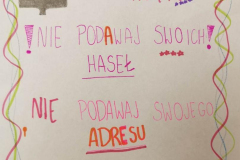 !NIE PODAWAJ SWOICH!
HASEŁ ****
NIE PODAWAJ SWOJEGO
! ADRESU